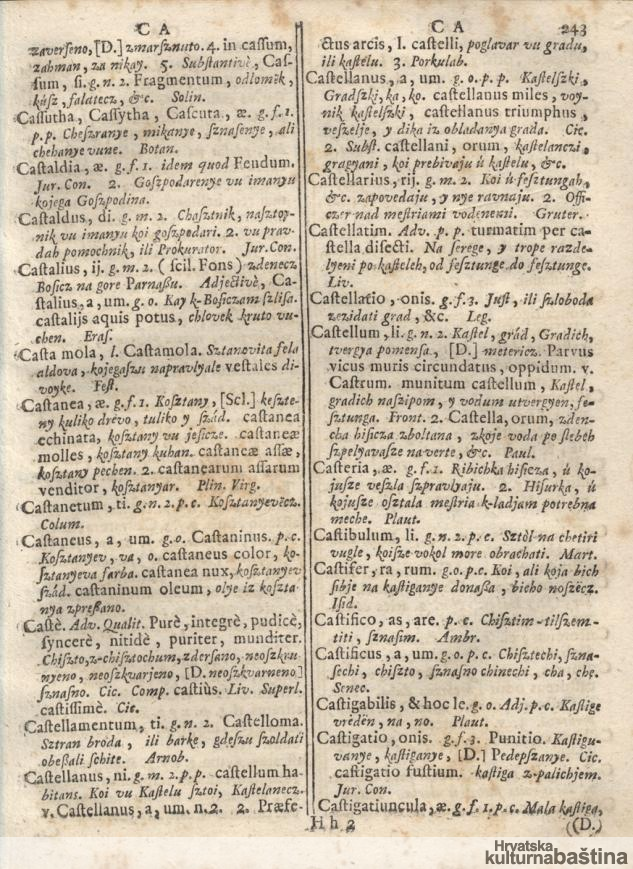 C A
zaverseno, [D.] zmarsznuto. 4. in cassum,
zahman, za nikay. 5. Substantivè, Cas-
sum, si. g. n. 2. Fragmentum, odlomek,
kúsz, falatecz, &c. Solin.
Cassutha, Cassytha, Cascuta, æ. g. f. 1.
p. p. Cheszranye, mikanye, sznasenye, ali
chehanye vune. Botan.
Castaldia, æ. g. f. 1. idem quod Feudum.
Jur. Con. 2. Goszpodarenye vu imanyu
kojega Goszpodina.
Castaldus, di. g. m. 2. Chasztnik, nasztoy-
nik vu imanyu koi goszpodari. 2. vu prav-
dah pomochnik, ili Prokurator. Jur. Con.
Castalius, ij. g. m. 2. ( scil. Fons) zdenecz
Bosicz na gore Parnaßu. Adjectivè, Ca-
stalius, a, um. g. o. Kay k-Bosiczam szlisa.
castalijs aquis potus, chlovek kruto vu-
chen. Eras.
Casta mola, l. Castamola. Sztanovita fela
aldova, kojegaszu napravlyale vestales di-
voyke. Fest.
Castanea, æ. g. f. 1. Kosztany, [Scl.] keszte-
ny kuliko drévo, tuliko y szád. castanea
echinata, kosztany vu jesicze. castaneæ
molles, kosztany kuhan. castaneæ assæ,
kosztany pechen. 2. castanearum assarum
venditor, kosztanyar. Plin. Virg.
Castanetum, ti. g. n. 2. p. c. Kosztanyevècz.
Colum.
Castaneus, a, um. g. o. Castaninus. p. c.
Kosztanyev, va, o. castaneus color, ko-
sztanyeva farba. castanea nux, kosztanyev
szád. castaninum oleum, olye iz koszta-
nya zpreßano.
Castè. Adv. Qualit. Purè, integrè, pudicè,
syncerè, nitidè, puriter, munditer.
Chiszto, z-chisztochum, zdersano, neoszkru-
nyeno, neoszkvarjeno, [D. neoszkvarneno]
sznasno. Cic. Comp. castiùs. Liv. Superl.
castissimè. Cic.
Castellamentum, ti. g. n. 2. Castelloma.
Sztran broda, ili barke, gdeszu szoldati
obeßali schite. Arnob.
Castellanus, ni. g. m. 2. p. p. castellum ha-
bitans. Koi vu Kastelu sztoi, Kastelanecz.
v. Castellanus, a, um. n. 2. 2. Præfe-
C A 243
ctus arcis, l. castelli, poglavar vu gradu,
ili kastelu. 3. Porkulab.
Castellanus, a, um. g. o. p. p. Kastelszki,
Gradszki, ka, ko. castellanus miles, voy-
nik kastelszki, castellanus triumphus,
veszelje, y dika iz obladanya grada. Cic.
2. Subst. castellani, orum, kastelanczi,
gragyani, koi prebivaju ú kastelu, &c.
Castellarius, rij. g. m. 2. Koi ú fesztungah,
&c. zapovedaju, y nye ravnaju. 2. Offi-
czer nad mestriami vodenemi. Gruter.
Castellatim. Adv. p. p. turmatim per ca-
stella disecti. Na serege, y trope razde-
lyeni po kasteleh, od fesztunge do fesztunge.
Liv.
Castellatio, onis. g. f. 3. Just, ili szloboda
zezidati grad, &c. Leg.
Castellum, li. g. n. 2. Kastel, grád, Gradich,
tvergya pomensa, [D.] metericz. Parvus
vicus muris circundatus, oppidum. v.
Castrum. munitum castellum, Kastel,
gradich naszipom, y vodum utvergyen, fe-
sztunga. Front. 2. Castella, orum, zden-
cha hisicza zboltana, zkoje voda po slebeh
szpelyavasze na verte, &c. Paul.
Casteria, æ. g. f. 1. Ribichka hisicza, ú ko-
jusze veszla szpravlyaju. 2. Hisurka, ú
kojusze osztala mestria k-ladjam potrebna
meche. Plaut.
Castibulum, li. g. n. 2. p. c. Sztòl na chetiri
vugle, koisze vokol more obrachati. Mart.
Castifer, ra, rum. g. o. p. c. Koi, ali koja bich
sibje na kastiganye donaßa, bicho noszècz.
Isid.
Castifico, as, are. p. c. Chisztim-tilszem-
titi, sznasim. Ambr.
Castificus, a, um. g. o. p. c. Chisztechi, szna-
sechi, chiszto, sznasno chinechi, cha, che.
Senec.
Castigabilis, & hoc le. g. o. Adj. p. c. Kastige
vrèdèn, na, no. Plaut.
Castigatio, onis. g. f. 3. Punitio. Kastigu-
vanye, kastiganye, [D.] Pedepszanye. Cic.
castigatio fustium. kastiga z-palichjem.
Jur. Con.
Castigatiuncula, æ. g. f. 1. p. c. Mala kastiga,
H h 2 (D.)
Hrvatska
kulturnabaština